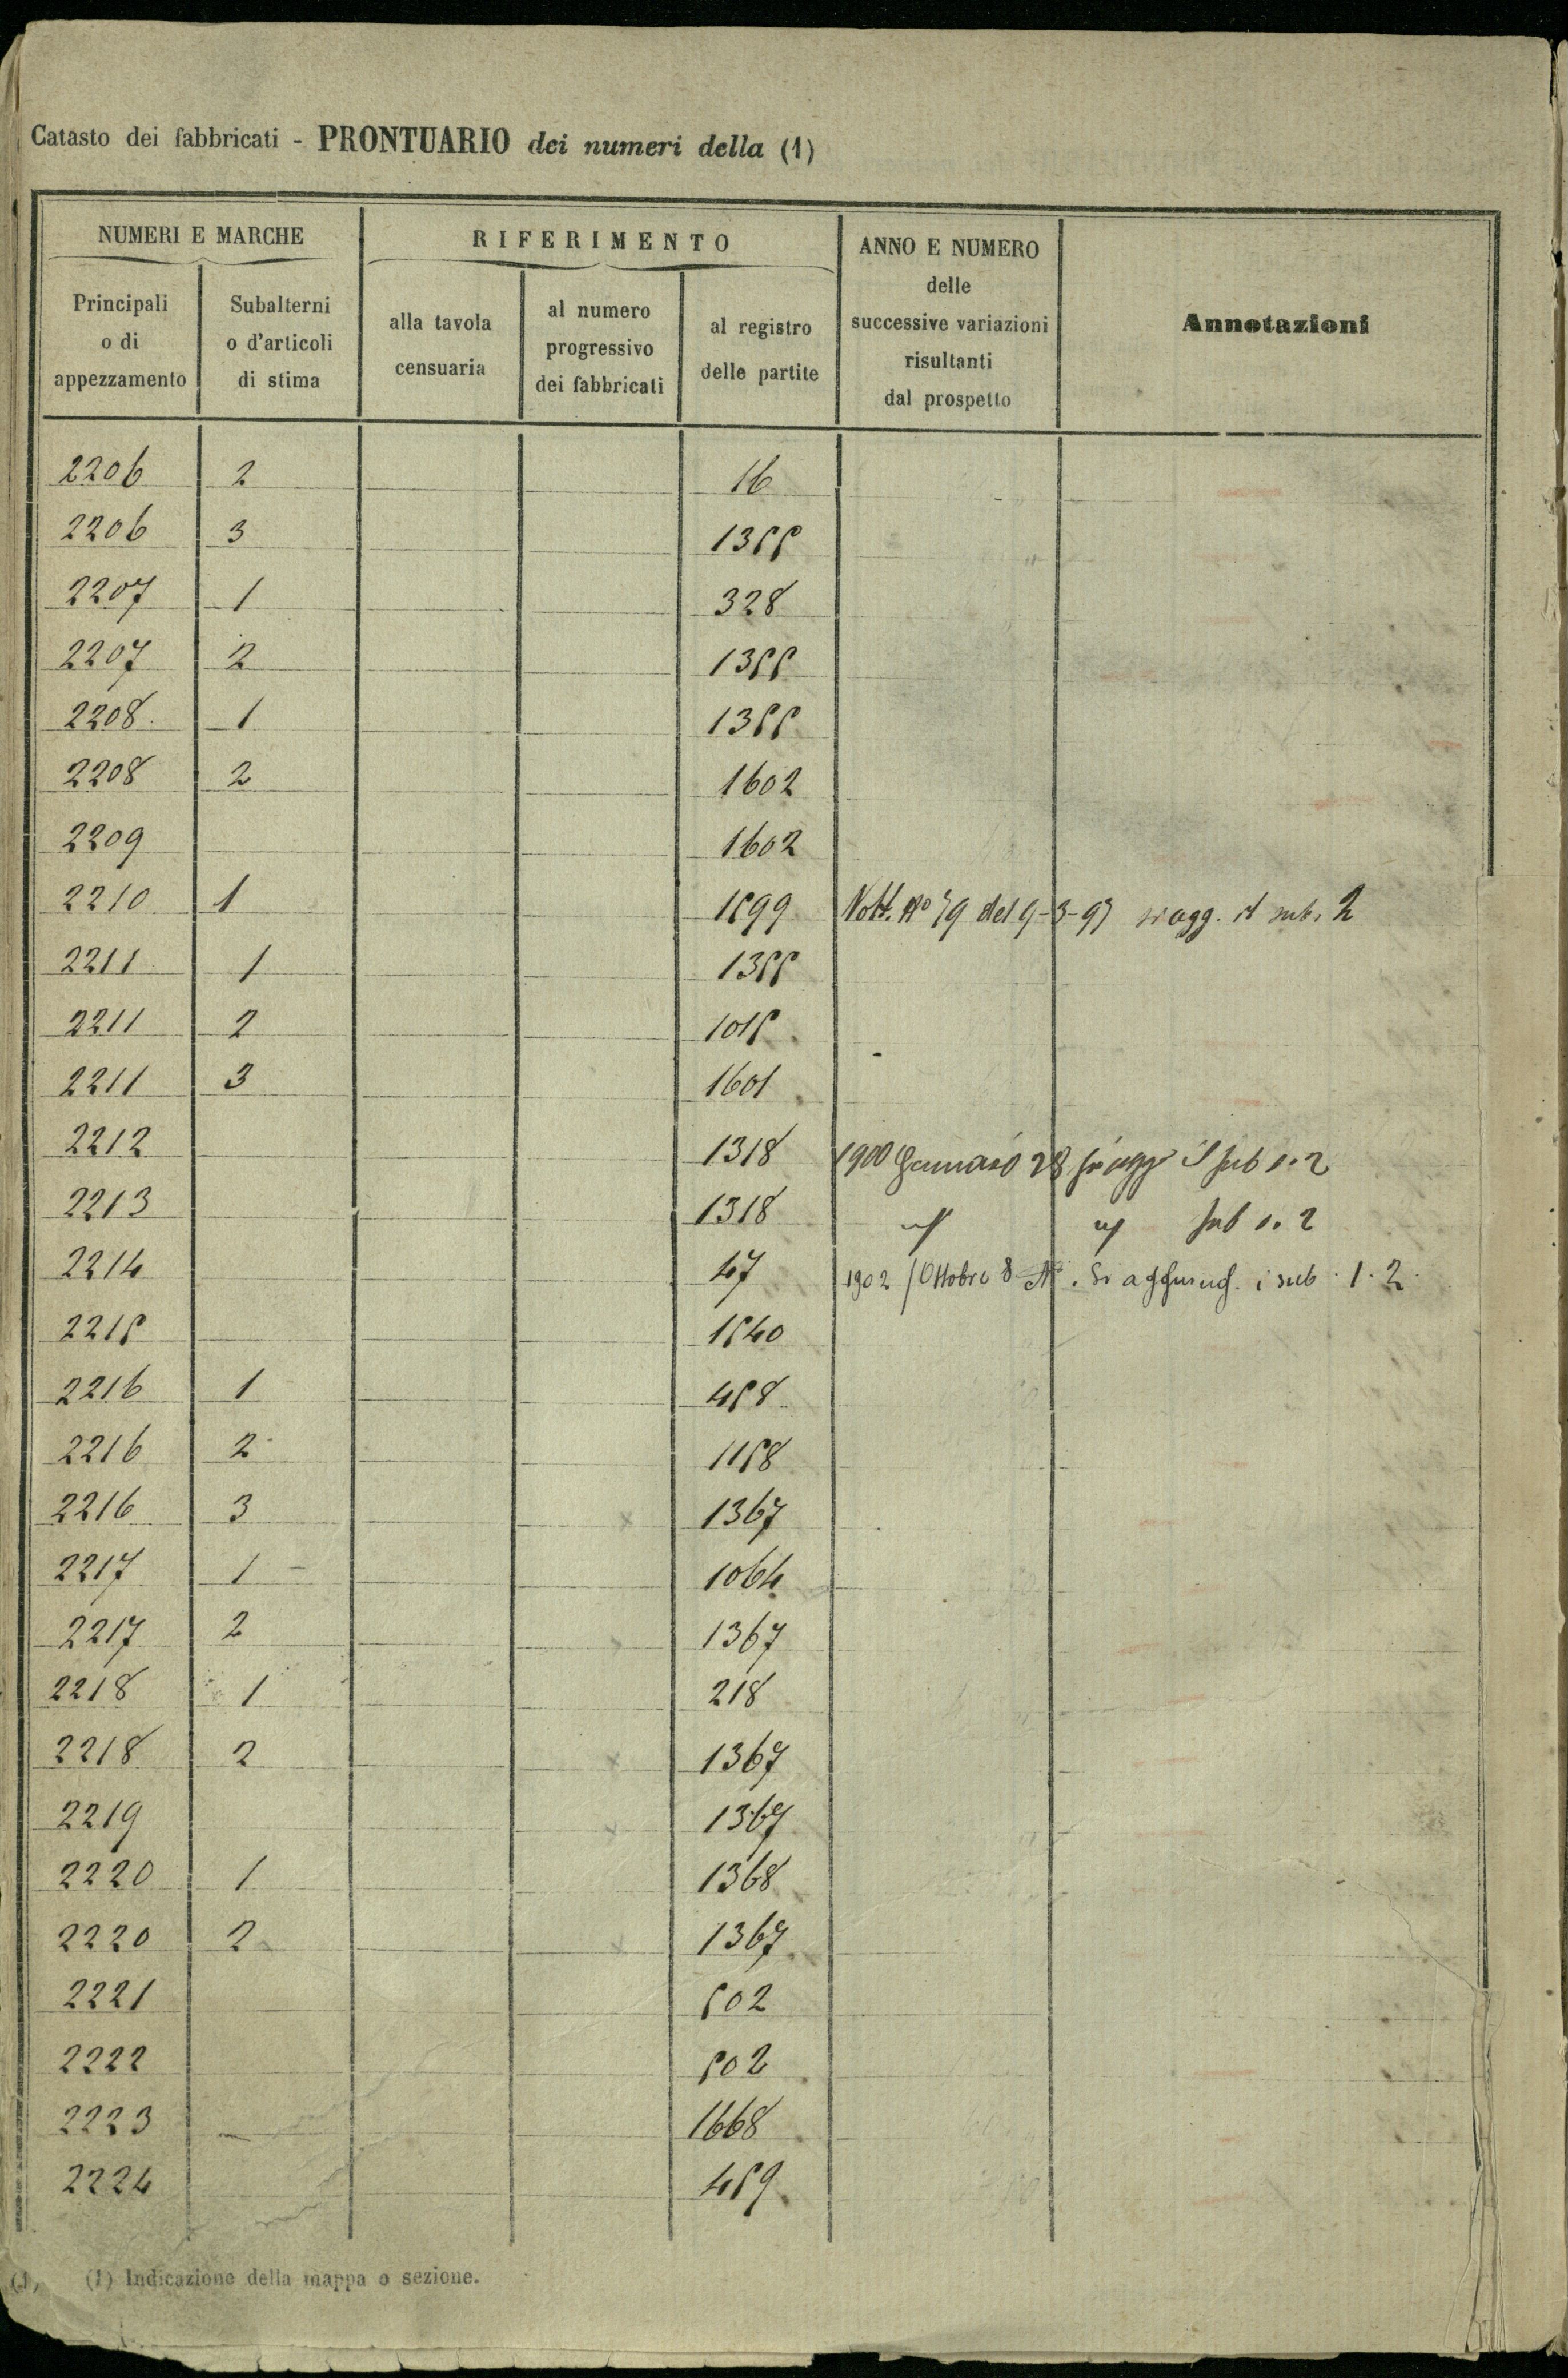 Catasto dei fabbricati - PRONTUARIO dei numeri della (1)
NUMERI E MARCHE
RIFERIMENTO
ANNO E NUMERO delle successive variazioni risultanti dal prospetto
Annotazioni
Principali o di appezzamento
Subalterni o d'articoli di stima
alla tavola censuaria
al numero progressivo dei fabbricati
al registro delle partite
2206 2 16
2206 3 1355
2207 1 328
2207 2 1355
2208 1 1355
2208 2 1602
2209 1602
2210 1 1599 del 9-3-97 si agg. il sub. 2
2211 1 1355
2211 2 1015
2211 3 1601
2212 1318 1900 Gennaio 28 si agg il sub n. 2
2213 1318 sub n. 2
2214 47 1902 Ottobre 8 Si aggiung. i sub. 1. 2.
2215 1540
2216 1 458
2216 2 1158
2216 3 x 1367
2217 1 1064
2217 2 x 1367
2218 1 218
2218 2 x 1367
2219 x 1367
2220 1 1368
2220 2 x 1367
2221 502
2222 502
2223 1668
2224 459
(1) Indicazione della mappa o sezione.